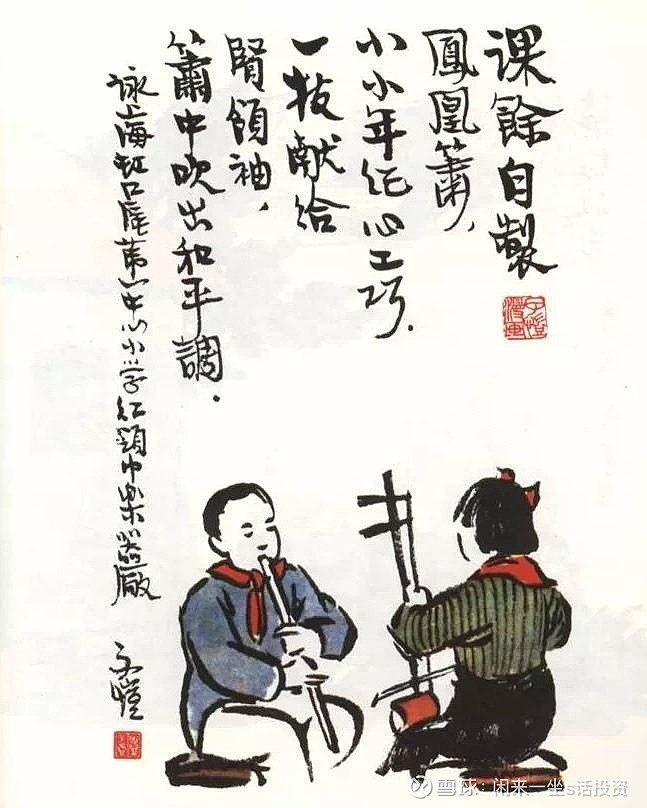 课餘自製
鳳凰簫，
小小年纪心工巧.
一枝献给
賢領袖，
簫中吹出和平調.
詠上海虹口區第一中心小学红領巾樂器厰
子愷
雪球：闲来一坐s话投资